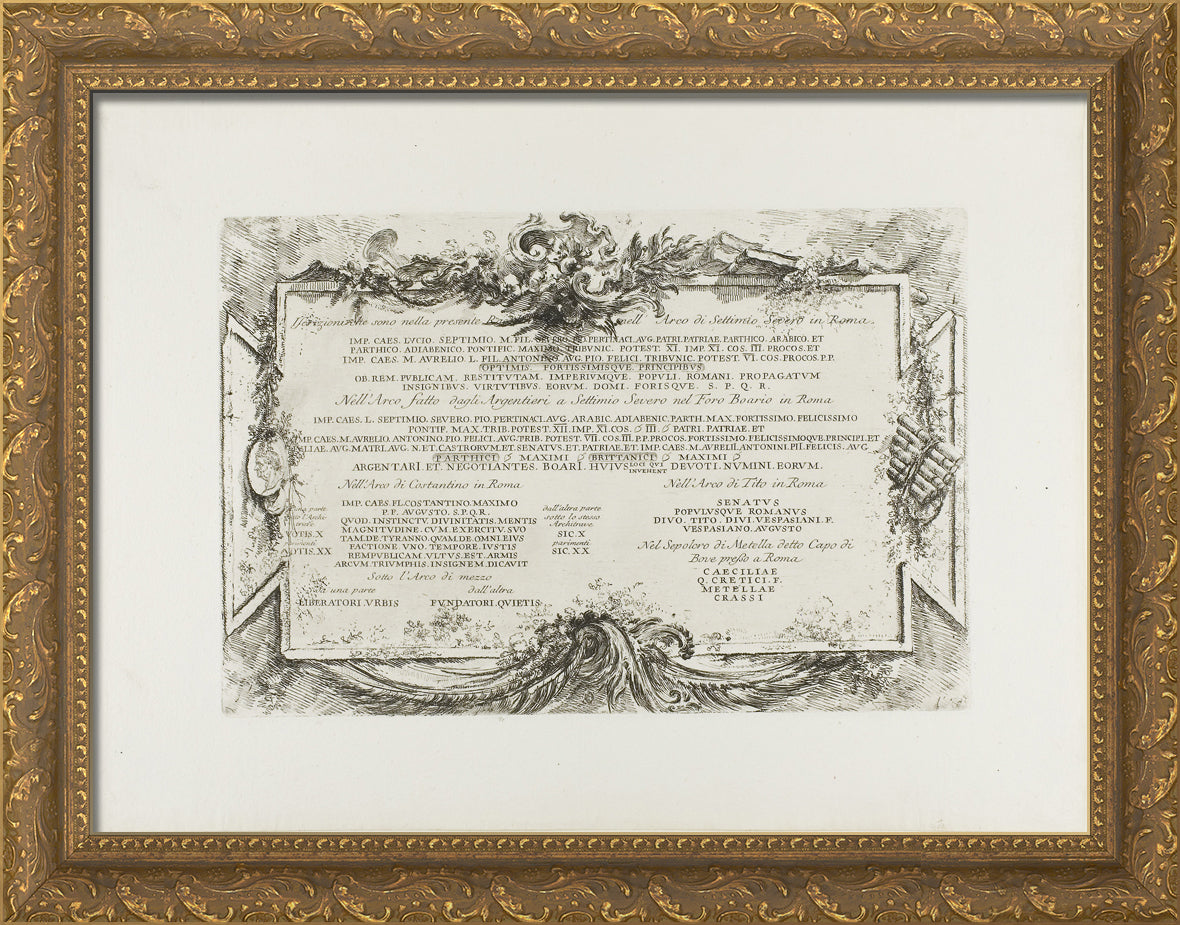 Iscrizioni che sono nella presente nell' Arco di Settimio Severo in Roma.
IMP. CAES. LVCIO. SEPTIMIO. M. FIL. SEVERO. PIO. PERTINACI. AVG. PATRI. PATRIAE. PARTHICO. ARABICO. ET
PARTHICO. ADIABENICO. PONTIFIC. MAXIMO. TRIBVNIC. POTEST. XI. IMP. XI. COS. III. PROCOS. ET
IMP. CAES. M. AVRELIO. L. FIL. ANTONINO. AVG. PIO. FELICI. TRIBVNIC. POTEST. VI. COS. PROCOS. P. P.
OPTIMIS. FORTISSIMISQVE. PRINCIPIBVS
OB. REM. PVBLICAM. RESTITVTAM. IMPERIVMQVE. POPVLI. ROMANI. PROPAGATVM
INSIGNIBVS. VIRTVTIBVS. EORVM. DOMI. FORISQVE. S. P. Q. R.
Nell'Arco fatto dagli Argentieri a Settimio Severo nel Foro Boario in Roma
IMP. CAES. L. SEPTIMIO. SEVERO. PIO. PERTINACI. AVG. ARABIC. ADIABENIC. PARTH. MAX. FORTISSIMO. FELICISSIMO
PONTIF. MAX. TRIB. POTEST. XII. IMP. XI. COS. III. PATRI. PATRIAE. ET
IMP. CAES. M. AVRELIO. ANTONINO. PIO. FELICI. AVG. TRIB. POTEST. VII. COS. III. P. P. PROCOS. FORTISSIMO. FELICISSIMOQVE. PRINCIPI. ET
IVLIAE. AVG. MATRI. AVG. N. ET. CASTRORVM. ET. SENATVS. ET. PATRIAE. ET. IMP. CAES. M. AVRELII. ANTONINI. PII. FELICIS. AVG.
PARTHICI MAXIMI BRITTANICI MAXIMI
ARGENTARI. ET. NEGOTIANTES. BOARI. HVIVS LOCI QVI INVEHENT DEVOTI. NVMINI. EORVM.
Nell'Arco di Costantino in Roma
IMP. CAES. FL. COSTANTINO. MAXIMO
P. F. AVGVSTO. S. P. Q. R.
QVOD. INSTINCTV. DIVINITATIS. MENTIS
MAGNITVDINE. CVM. EXERCITV. SVO
TAM. DE. TYRANNO. QVAM. DE. OMNI. EIVS
FACTIONE VNO. TEMPORE. IVSTIS
REMPVBLICAM. VLTVS. EST. ARMIS
ARCVM. TRIVMPHIS. INSIGNEM. DICAVIT
una parte
l'Archi-
trave
VOTIS. X
parimenti
VOTIS. XX
dall'altra parte
sotto lo stesso
Architrave.
SIC. X
parimenti
SIC. XX
Sotto l'Arco di mezzo
da una parte
LIBERATORI. VRBIS
dall'altra
FVNDATORI. QVIETIS
Nell'Arco di Tito in Roma
SENATVS
POPVLVSQVE ROMANVS
DIVO. TITO. DIVI. VESPASIANI. F.
VESPASIANO. AVGVSTO
Nel Sepolcro di Metella detto Capo di
Bove presso a Roma
CAECILIAE
Q. CRETICI. F.
METELLAE
CRASSI